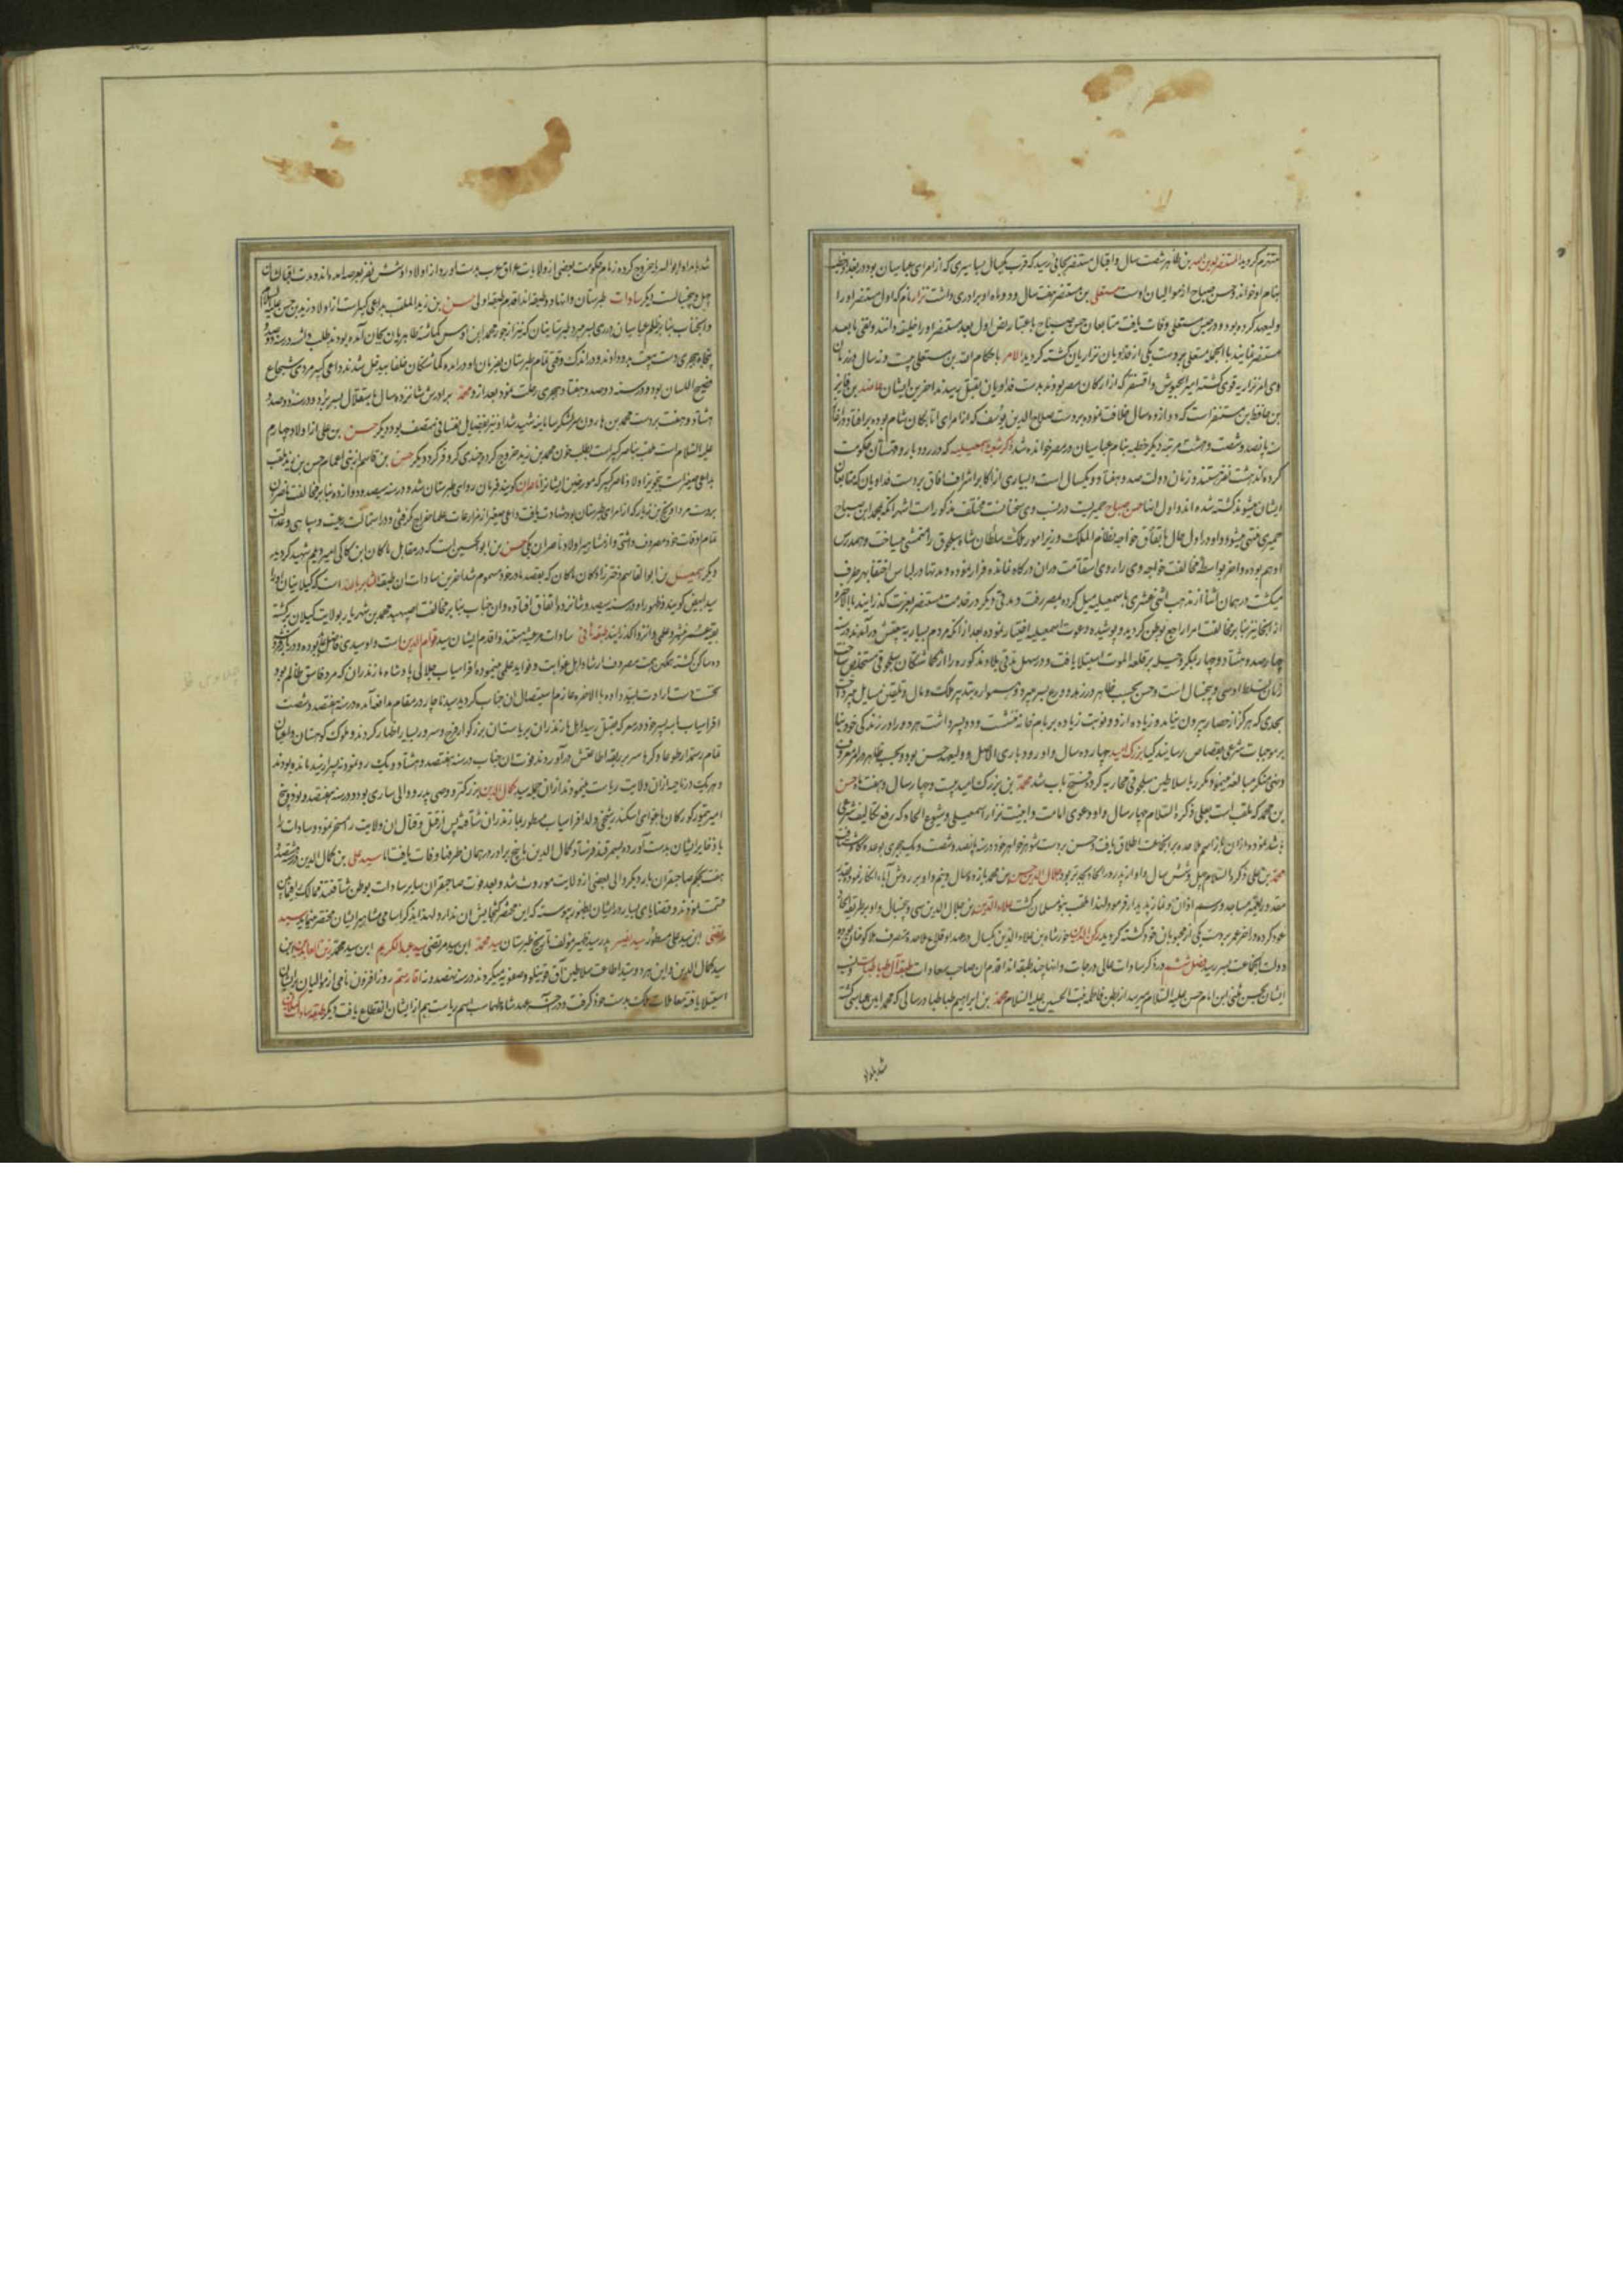 منهزم کردید المستنصر بن طاهر شصت سال و اقبال مستنصر بجائی رسید که قرب یکسال بساسیری که از امرای عباسیان بود در بغداد خطبه
بنام او خواند و حسن صباح از موالیان اوست مستعلی بن مستنصر هفت سال و دو ماه او برادری داشت نزار نام که اول مستنصر او را
ولیعهد کرده بود و در حین مستعلی وفات یافت متابعان حسن صباح باعتبار نص اول بعد مستنصر او را خلیفه دانند و لقبی بابعد
مستنصر نمایند بالجمله مستعلی بر دست یکی از فداویان نزاریان کشته کردید الامر باحکام الله بن مستعلی بیست و نه سال و در زمان
وی امر نزاریه قوی کشته امیر الجیوش و اقسنقر که از ارکان مصر بودند بدست فداویان بقتل رسیدند آخرین ایشان عاضد بن فایز
بن حافظ بن مستنصر است که دوازده سال خلافت نموده بر دست صلاح الدین یوسف که از امرای اتابکان شام بوده بر افتاد و در
سنه پانصد و شصت و هشت مرتبه دیگر خطبه بنام عباسیان در مصر خوانده شد ذکر شعبه اسمعیلیه که در رودبار و قهستان حکومت
کرده‌اند هشت نفر هستند و زمان دولت صد و هفتاد و یکسال است و بسیاری از اکابر اشراف آفاق بر دست فداویان که متابعان
ایشان میشوند کشته شده‌اند و اول ایشان حسن صباح حمیریست و در نسب وی سخنان مختلف مذکور است اشهر آنکه بمحمد ابن صباح
حمیری منتهی میشود و او در اول حال باتفاق خواجه نظام الملک وزیر امور ملک سلطان شاه سلجوق را متمشی میساخت و همدرس
او هم بوده و آخر بواسطه مخالفت خواجه وی را روی استقامت در آن درگاه نمانده فرار نموده و مدتها در لباس اختفا بهر طرف
میکشت در همان اثنا از مذهب اثنی عشری باسمعیلیه میل کرده بمصر رفت و مدتی دیگر در خدمت مستنصر بعزت گذرانیده بالاخره
از آنجا نیز بنا بر مخالفت امرا راجع بوطن کردید و پوشیده دعوت اسمعیلیه اختیار نموده بعد از آنکه مردم بسیار به بیعتش درآمدند در سنه
چهارصد و هشتاد و چهار بمکر و حیله بر قلعه الموت استیلا یافت و در سهل مدتی بلاد مذکوره را از گماشتگان سلجوقی مستخلص ساخت
زمان تسلط او سی و پنجسال است و حسن بحسب ظاهر در زهد و ورع بسر میبرد و همواره بتدبیر ملک و مال و تلقین مسایل میپرداخت
بحدی که هرگز از حصار بیرون نیامد و زیاده از دو نوبت زیاده بر بام خانه ننشست و دو پسر داشت هر دو را در زندگی خود بنا
بر موجبات شرعی بقصاص رسانید کیا بزرک امید چهارده سال و او رودباری الاصل و ولیعهد حسن بود و بحسب ظاهر در امر معروف
و نهی منکر مبالغه مینمود و مکرر با سلاطین سلجوقی محاربه کرد و فتح یاب شد محمد بن بزرک امید بیست و چهار سال و هفت ماه حسن
بن محمد که ملقب است بعلی ذکره السلام چهار سال و او دعوی امامت و اجنیت نزار اسمعیلی و شیوع الحاد که رفع تکالیف شرعی
باشد نموده از آن باز اسم ملاحده بر آنجماعت اطلاق یافت و حسن بر دست شوهر خواهر خود در سنه پانصد و شصت و یک هجری
محمد بن علی ذکره السلام چهل و شش سال و او از پدر در الحاد بجدتر بود جلال الدین حسن بن محمد یازده سال و نیم و او بر روش آباء انکار نموده
مقدور بتعمیر مساجد و رسم اذان و نماز پدیدار فرمود و لهذا ملقب بنو مسلمان کشت علاء الدین بن جلال الدین سی و پنجسال و او بر طریقه آباء
عود کرده و آخر عمر بر دست یکی از محبوبان خود کشته کردید رکن الدین خورشاه بن علاء الدین یکسال و در عهد او قلاع ملاحده بتصرف هلاکو خان
دولت آنجماعت بسر رسید فصل ششم در ذکر سادات عالی درجات و آنها چند طبقه‌اند اقدم آن صاحب سعادات طبقه آل طباطبا است و نسب
ایشان بحسن مثنی ابن امام حسن علیه السلام میرسد از بطن فاطمه بنت الحسین علیه السلام محمد بن ابراهیم طباطبا در سالی که محمد امین عباسی کشته
شد بامداد
شد بامداد ابوالسرایا خروج کرده زمام حکومت بعضی از ولایات عراق عرب بدست آورد و از اولاد او شش نفر بعرصه آمده‌اند و مدت اقبال ایشان
چهل و پنجسالست دیگر سادات طبرستان و آنها دو طبقه‌اند اقدم طبقه اولی حسن بن زید الملقب بداعی کبیر است از اولاد زید بن حسن علیه السلام
و آنجناب بنا بر ظلم عباسیان در ری بسر میبرد طبرستانیان که نیز از جور محمد ابن اوس گماشته طاهریان بجان آمده بودند بطلب داشته در سنه دویست و
پنجاه هجری دست بیعت بدو دادند و در اندک وقتی تمام طبرستان بفرمان او درآمده گماشتگان خلفا بیدخل شدند داعی کبیر مردی شجاع
فصیح اللسان بود و در سنه دوصد و هفتاد هجری رحلت نمود بعد از و محمد برادرش شانزده سال باستقلال بسر برد و در سنه دوصد و
هشتاد و هفت بر دست محمد بن هارون سر لشکر سامانیه شهید شد او نیز بفضایل نفسانی متصف بود دیگر حسن بن علی از اولاد چهارم
علیه السلام است ملقب بناصر کبیر است بطلب خون محمد بن زید خروج کرد و چندی کر و فر کرد دیگر حسن بن قاسم از بنی اعمام حسن بن زید ملقب
بداعی صغیر است بتجویز اولاد ناصر کبیر که مورخین ایشانرا ناصران گویند فرمان روای طبرستان شده در سنه سیصد و دوازده بنا بر مخالفت ناصران
بر دست مرداویج بن زیار که از امرای طبرستان بود شهادت یافت داعی صغیر از مزارعات علما خراج نگرفتی و در استمالت رعیت و سپاهی و عدالت
تمام اوقات خود مصروف داشتی و از مشاهیر اولاد ناصران یکی حسن بن ابوالحسین است که در مقابل ماکان ابن کاکی امیر دیلم شهید کردید
دیگر اسمعیل بن ابوالقاسم دخترزاده ماکان که بقصد مادر خود مسموم شد آخرین سادات آن طبقه الثایر بالله است که گیلانیان او را
سید ابیض گویند و ظهور او در سنه سیصد و شانزده اتفاق افتاده و آن جناب بنا بر مخالفت اصپهبد محمد بن شهریار بولایت گیلان برگشته
بقیه عمر بزهد و علم و انزوا گذرانید طبقه ثانی سادات مرعشیه هستند و اقدم ایشان سید قوام الدین است و او سیدی فاضل بوده
ده ساکن گشته همگی همت مصروف ارشاد اهل غوایت و فواید علمی مینموده افراسیاب جلالی پادشاه مازندران که مرد فاسق ظالم بود
نخست دست ارادت به سید داده بالاخره عازم استیصال آن جناب کردید سید ناچار در مقام مدافعه آمده در سنه هفتصد و شصت
افراسیاب با سه پسر خود در معرکه بقتل رسید اهل مازندران بریاست آن بزرگوار فرح و سرور بسیار اظهار کردند و ملوک کوهستان و اعیان
تمام رستمدار طوعا و کرها سر بربقه اطاعتش درآوردند فوت آن جناب در سنه هفتصد و هشتاد و یک رو نمود
و هر یک در ناحیه از آن ولایت ریاست مینمودند از آن جمله سید کمال الدین بزرگتر و وصی پدر و والی ساری بود و در سنه هفتصد و نود و پنج
امیر تیمور گورکان باغوای اسکندر شیخی ولد افراسیاب مسطور بمازندران شتافته پس از قتل و قتال آن ولایت را مسخر نموده و سادات را
با ذخایر ایشان بدست آورده بسمرقند فرستاد کمال الدین با پنج برادر در همان طرفها وفات یافت اما سید علی بن کمال الدین در هشتصد و
هفت بحکم صاحبقران بار دیگر والی بعضی از ولایت موروث شد و بعد فوت صاحبقران سایر سادات بوطن شتافتند ممالک را فیمابین
قسمت نمودند و قضایای بسیار در ایشان بظهور پیوسته که این مختصر گنجایش آن ندارد لهذا بذکر اسامی مشاهیر ایشان مختصر مینماید سید
مرتضی ابن سید علی مسطور سید نصیر پدر سید ظهیر مؤلف تاریخ طبرستان سید محمد ابن سید مرتضی سید عبدالکریم ابن سید محمد زین العابدین بن
سید کمال الدین و این هر دو سید اطاعت سلاطین آق قوینلو و صفویه میکردند در سنه نهصد و نه آقا رستم روزافزون نامی از موالیان بر ایشان
استیلا یافته معاملات ملک بدست خود گرفت و در عهد شاه طهماسب اسم ریاست هم از ایشان انقطاع یافت دیگر طبقه سادات گیلان